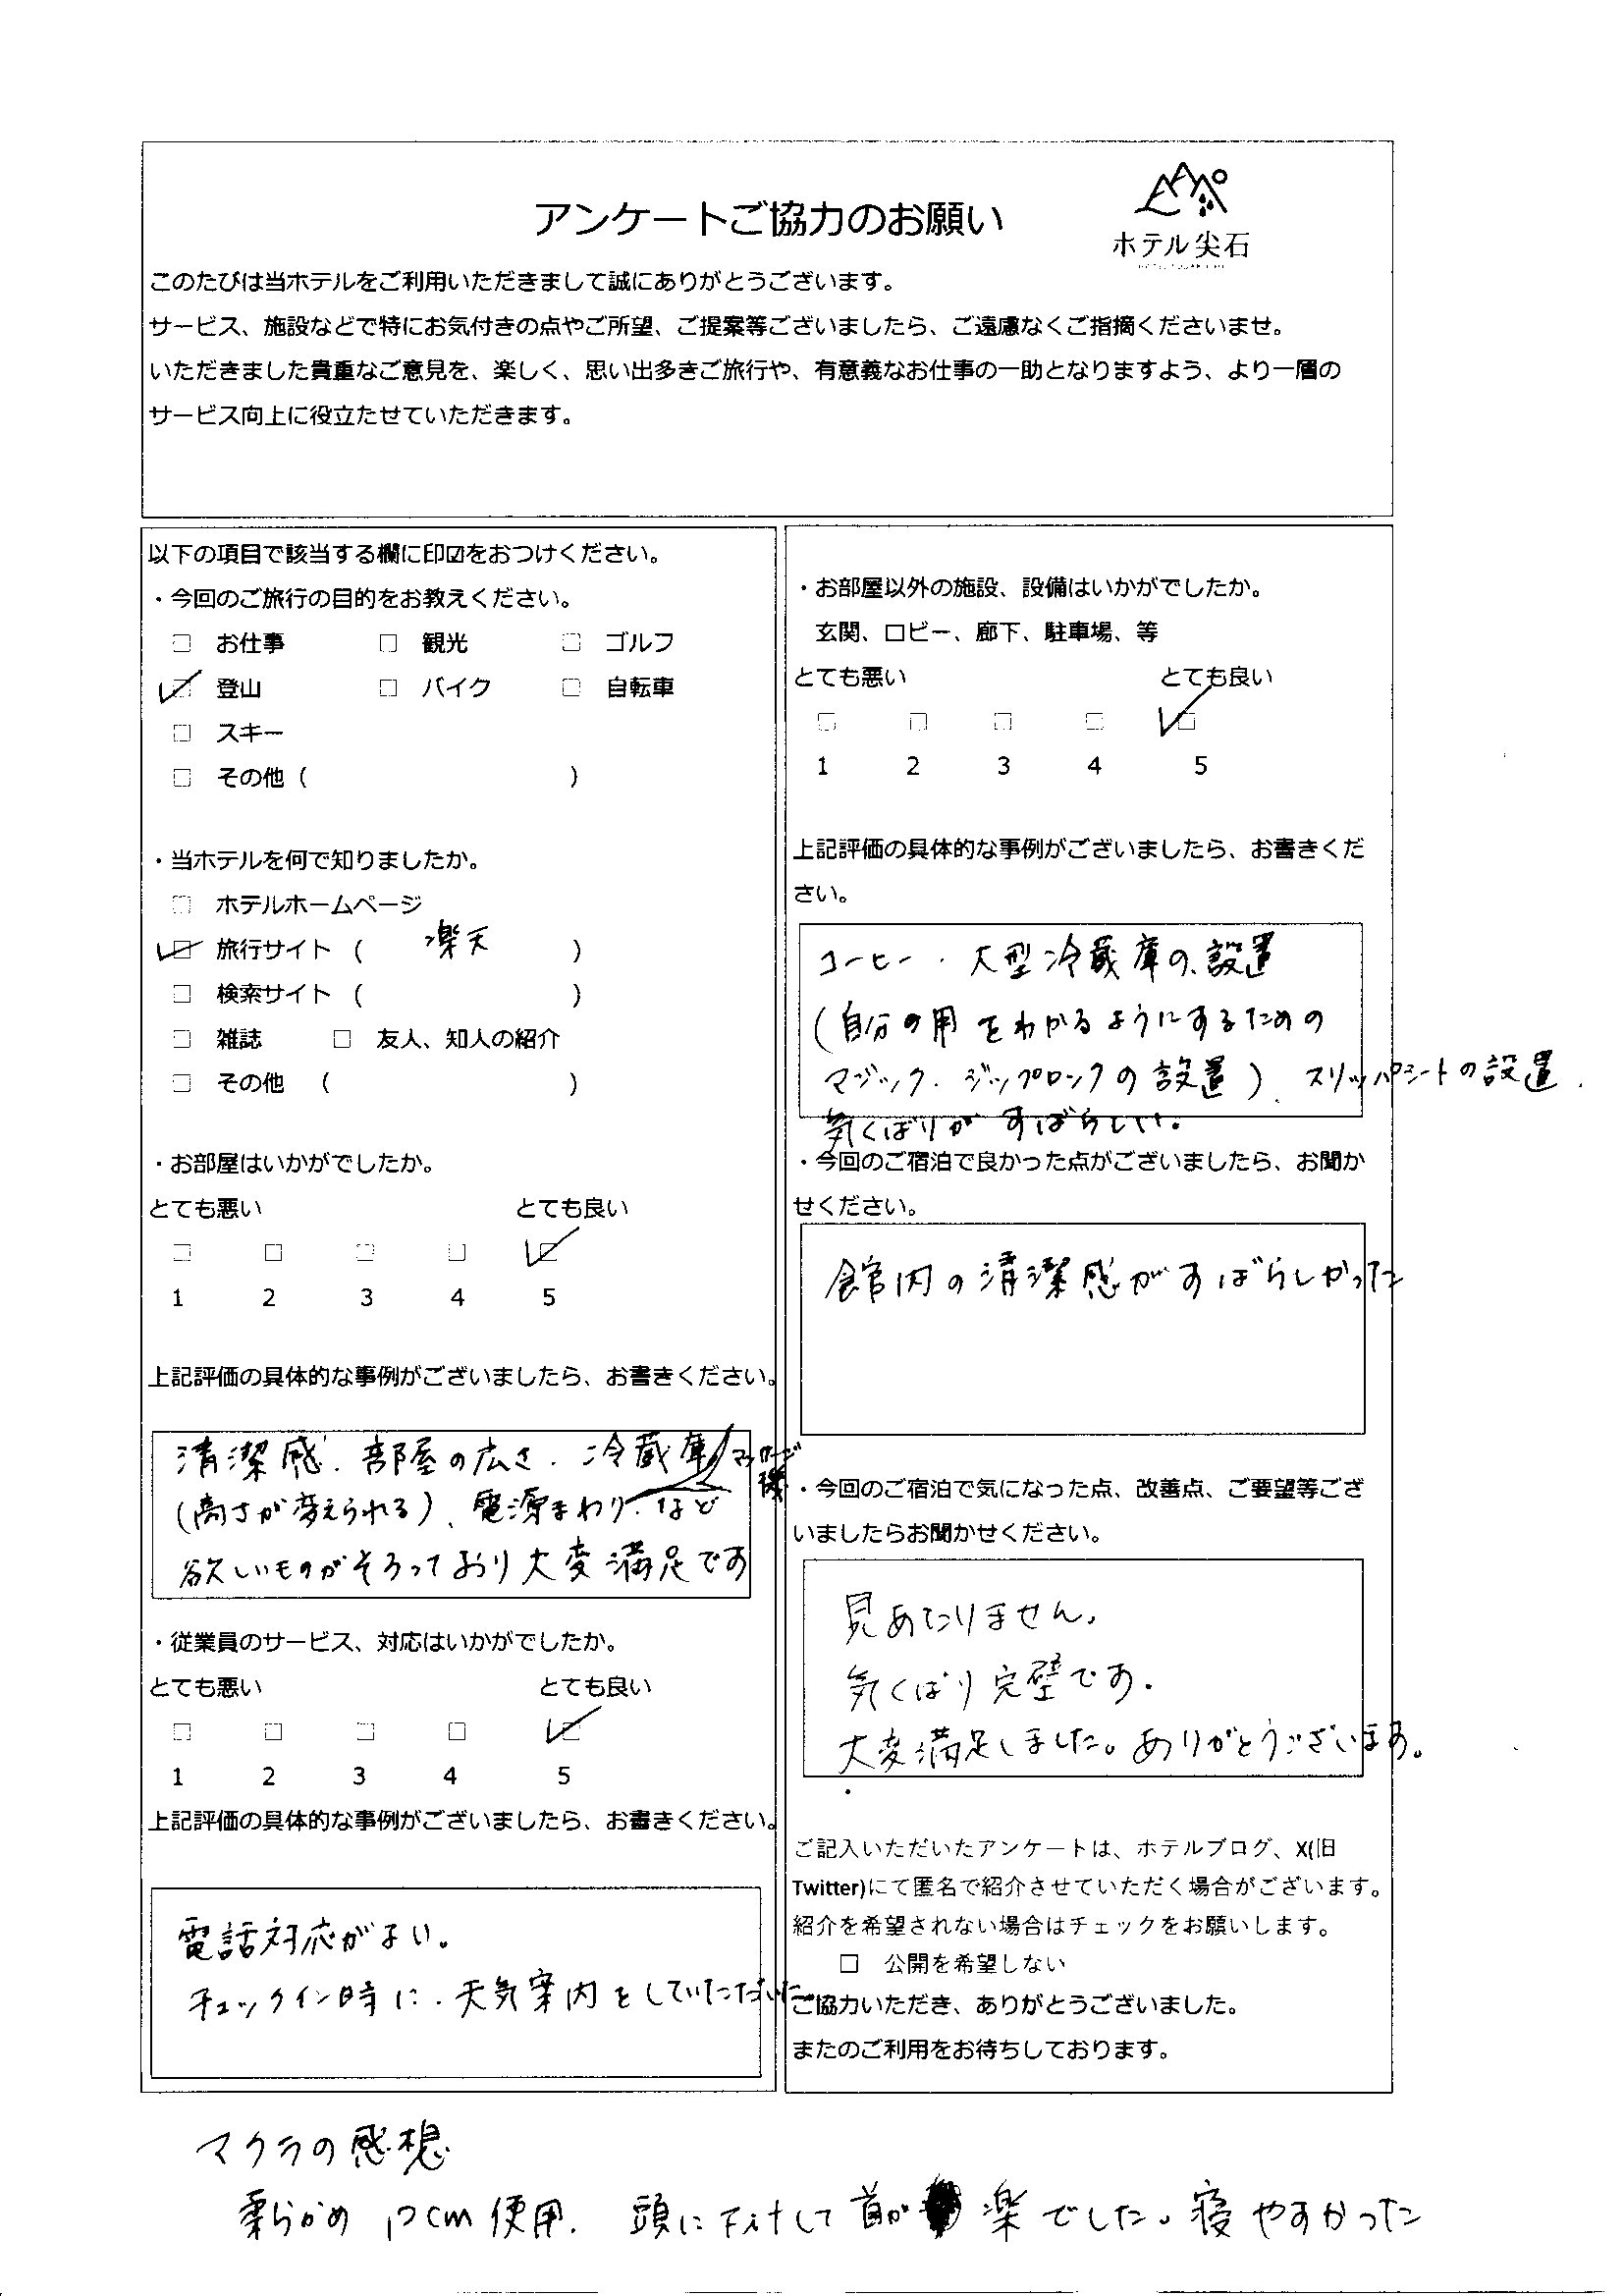 アンケートご協力のお願い
ホテル尖石
このたびは当ホテルをご利用いただきまして誠にありがとうございます。
サービス、施設などで特にお気付きの点やご所望、ご提案等ございましたら、ご遠慮なくご指摘くださいませ。
いただきました貴重なご意見を、楽しく、思い出多きご旅行や、有意義なお仕事の一助となりますよう、より一層の
サービス向上に役立たせていただきます。
以下の項目で該当する欄に印☑をおつけください。
・今回のご旅行の目的をお教えください。
□ お仕事 □ 観光 □ ゴルフ
☑ 登山 □ バイク □ 自転車
□ スキー
□ その他（ ）
・当ホテルを何で知りましたか。
□ ホテルホームページ
☑ 旅行サイト（ 楽天 ）
□ 検索サイト（ ）
□ 雑誌 □ 友人、知人の紹介
□ その他 （ ）
・お部屋はいかがでしたか。
とても悪い とても良い
□ □ □ □ ☑
1 2 3 4 5
上記評価の具体的な事例がございましたら、お書きください。
清潔感、部屋の広さ、冷蔵庫、マッサージ機
(高さが変えられる)、電源まわり、など
欲しいものがそろっており大変満足です
・従業員のサービス、対応はいかがでしたか。
とても悪い とても良い
□ □ □ □ ☑
1 2 3 4 5
上記評価の具体的な事例がございましたら、お書きください。
電話対応がよい。
チェックイン時に、天気案内をしていただいた。
・お部屋以外の施設、設備はいかがでしたか。
玄関、ロビー、廊下、駐車場、等
とても悪い とても良い
□ □ □ □ ☑
1 2 3 4 5
上記評価の具体的な事例がございましたら、お書きくだ
さい。
コーヒー、大型冷蔵庫の設置
(自分の用をわかるようにするための
マジック、ジップロックの設置)、スリッパシートの設置、
気くばりがすばらしい。
・今回のご宿泊で良かった点がございましたら、お聞か
せください。
館内の清潔感がすばらしかった
・今回のご宿泊で気になった点、改善点、ご要望等ござ
いましたらお聞かせください。
見あたりません。
気くばり完璧です。
大変満足しました。ありがとうございます。
ご記入いただいたアンケートは、ホテルブログ、X(旧
Twitter)にて匿名で紹介させていただく場合がございます。
紹介を希望されない場合はチェックをお願いします。
□ 公開を希望しない
ご協力いただき、ありがとうございました。
またのご利用をお待ちしております。
マクラの感想
柔らかめ 12cm使用、頭に フィットして 首が 楽でした。寝やすかった